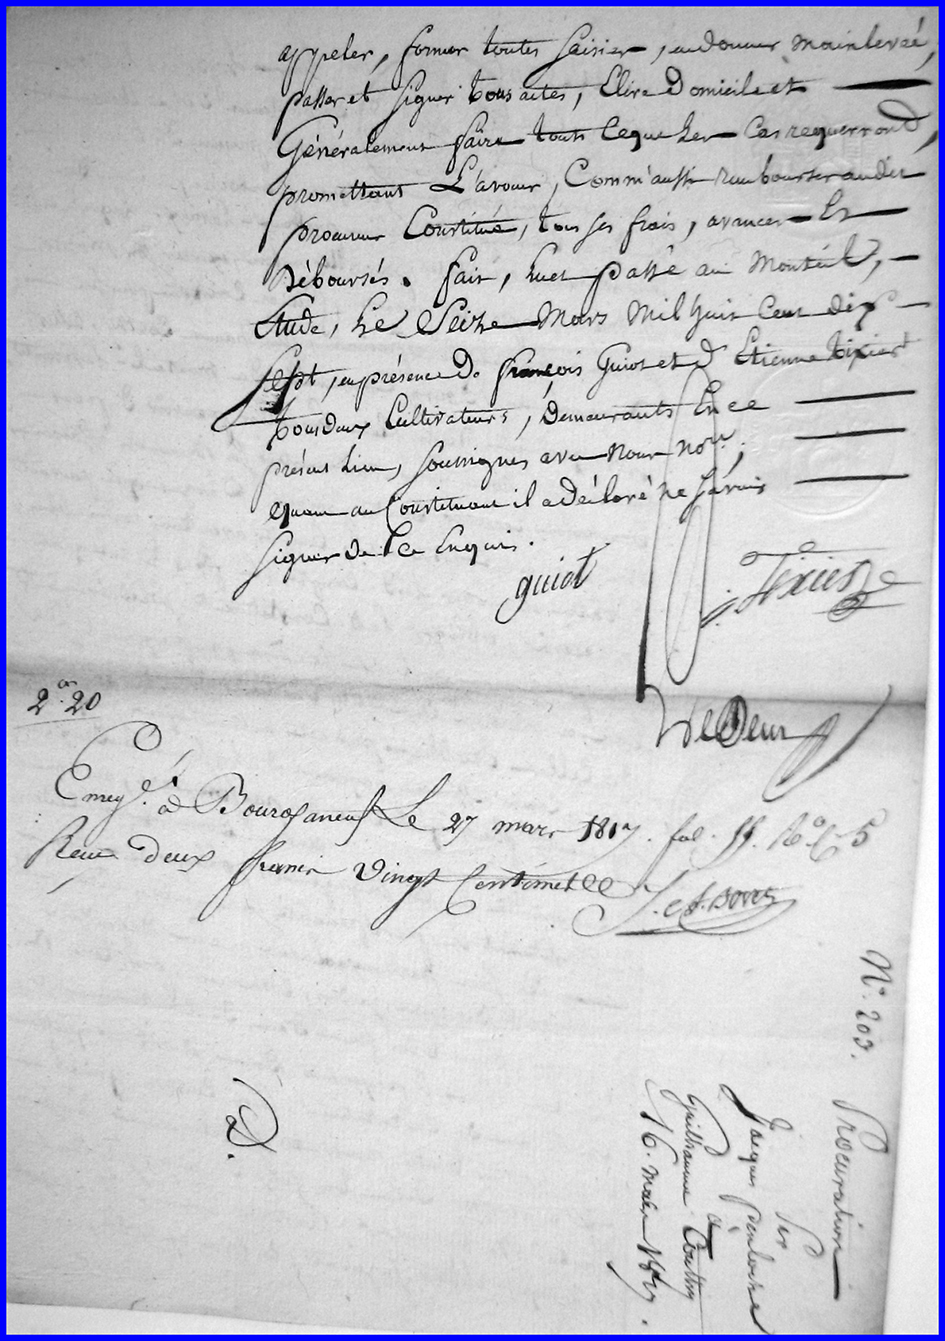 appeler, former toutes saisies, en donner mainlevée,
passer et signer tous actes, Elire Domicile et
Généralement faire tout ce que les Cas requerront,
promettant L'avouer, Comm'aussi rembourser audit
procureur Constitué, tous ses frais, avances Et
Déboursés. fait, lu et passé au Monteil,
Etude, Le Seize Mars Mil huit Cent dix
sept, en présence de françois Guiot et d'Etienne tixier
tous deux Cultivateurs, Demeurants En ce
présent Lieu, soussignés avec Nous Nore,
quant au Constituant il a déclaré ne savoir
signer De Ce Enquis.
guiot
Tixier
2 20
Enregé. à Bourganeuf Le 27 mars 1817. fol. Ro C 5
Reçu deux francs vingt Centimes
D.
No. 203.
Procuration
Par
Jacques
à
Guilhaume
16. mars 1817.